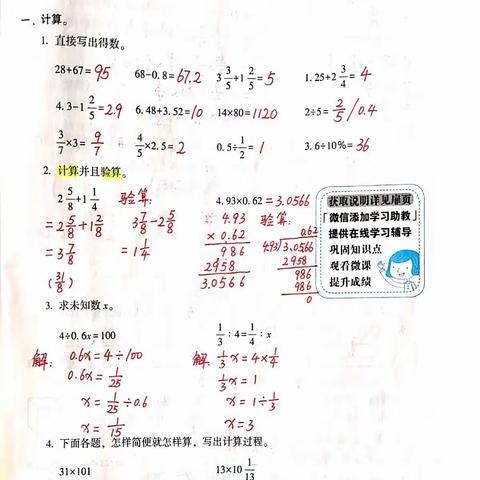 一、计算。
1. 直接写出得数。
28+67=95 68-0.8=67.2 3 3/5+1 2/5=5 1.25+2 3/4=4
4.3-1 2/5=2.9 6.48+3.52=10 14×80=1120 2÷5=2/5/0.4
3/7×3=9/7 4/5×2.5=2 0.5÷1/2=1 3.6÷10%=36
2. 计算并且验算。
2 5/8+1 1/4 验算:
=2 5/8+1 2/8 3 7/8-2 5/8
=3 7/8 =1 1/4
(31/8)
4.93×0.62=3.0566
4.93
×0.62
986
2958
3.0566
验算:
0.62
4.93)3.0566
2958
986
986
0
获取说明详见扉页
「微信添加学习助教」
提供在线学习辅导
巩固知识点
观看微课
提升成绩
3. 求未知数x。
4÷0.6x=100
解: 0.6x=4÷100
0.6x=1/25
x=1/25÷0.6
x=1/15
1/3:4=1/4:x
解: 1/3x=4×1/4
1/3x=1
x=1÷1/3
x=3
4. 下面各题,怎样简便就怎样算,写出计算过程。
31×101 13×10 1/13